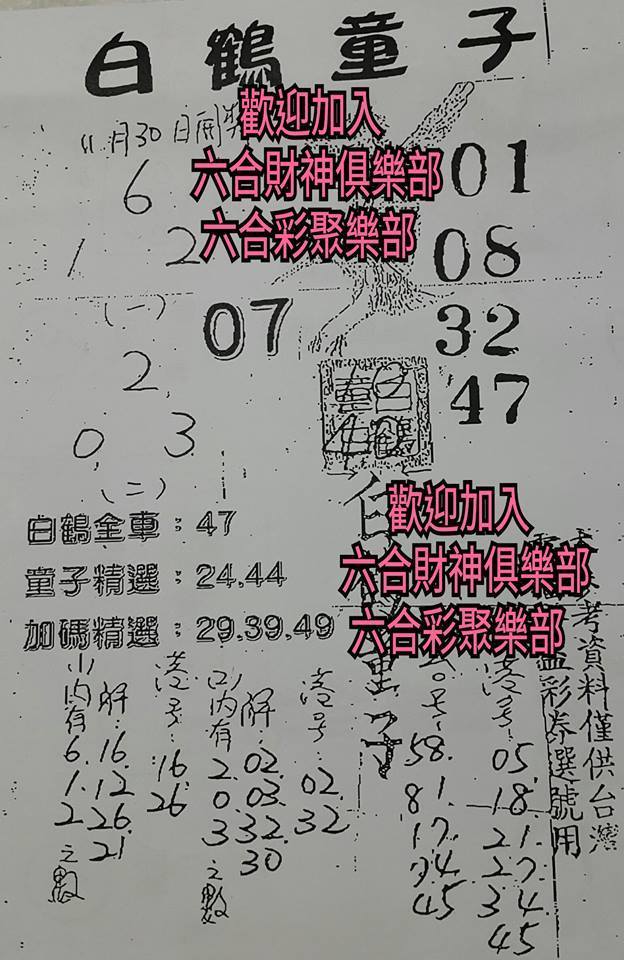 白鶴童子
11月30日開獎
歡迎加入
六合財神俱樂部
六合彩聚樂部
6
1 2
(一)
01
08
32
47
07
2
0 3
(二)
童白
子鶴
白鶴全車:47
童子精選:24,44
加碼精選:29,39,49
歡迎加入
六合財神俱樂部
六合彩聚樂部
內有
6.
1.
2
之數
解:
16.
12
26.
21
港号:
16
26
內有
2.
0.
3
之數
解:
02.
03.
32.
30
港号:
02.
32
童子
58.
81.
17.
45
港号:
05.
18.
21.
27.
34.
45
考資料僅供台灣
彩券選號用